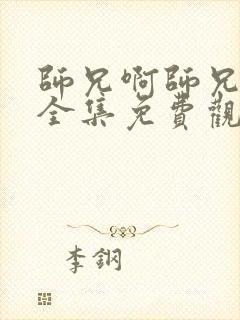 師兄啊師兄
全集免費觀
李鋼